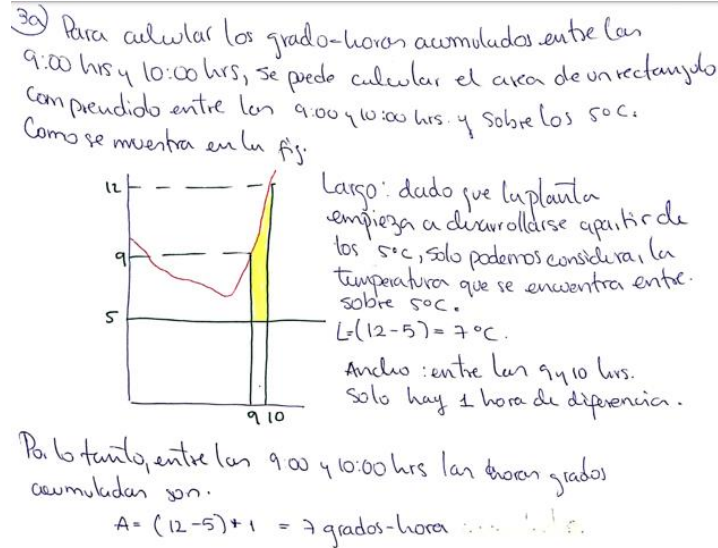 3a) Para calcular los grado-horas acumulados entre las
9:00 hrs y 10:00 hrs, se puede calcular el area de un rectangulo
comprendido entre las 9:00 y 10:00 hrs. y sobre los 5°C.
Como se muestra en la fig.
12
9
5
9 10
Largo: dado que la planta
empieza a desarrollarse apartir de
los 5°C, solo podemos considerar la
temperatura que se encuentra entre.
sobre 5°C.
L=(12-5)= 7°C.
Ancho: entre las 9 y 10 hrs.
solo hay 1 hora de diferencia.
Por lo tanto, entre las 9:00 y 10:00 hrs las horas grados
acumuladas son.
A= (12-5)*1 = 7 grados-hora